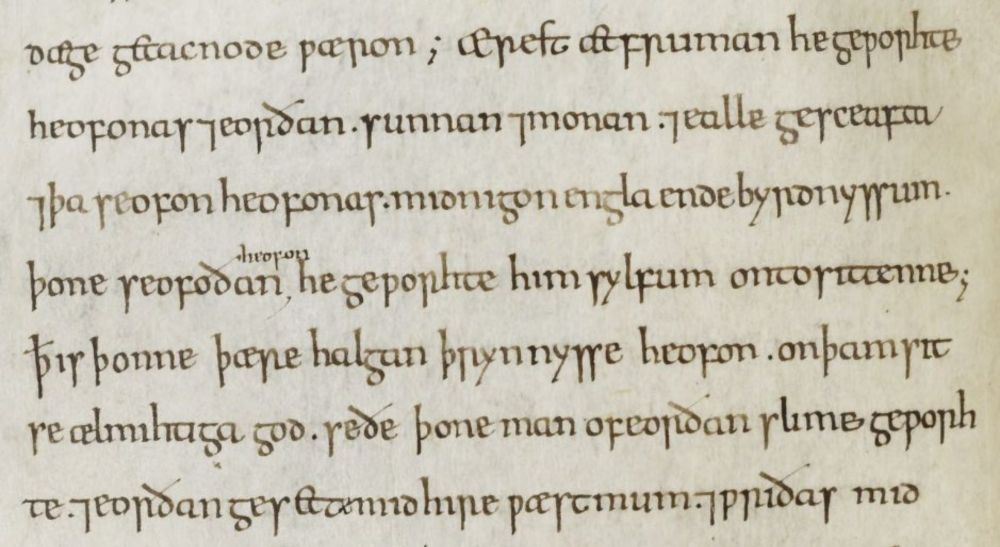 dæge getacnode ƿæron ; Ærest æt fruman he geƿorhte
heofonas ⁊ eorðan . sunnan ⁊ monan . ⁊ ealle gesceafta
⁊ þa seofon heofonas . mid nigon engla endebyrdnyssum .
þone seofoðan heofon he geƿorhte him sylfum onto sittenne ;
ꝥ is þonne þære halgan þrynnysse heofon . on þam sit
se ælmihtiga god . seðe þone man of eorðan slime geƿorh
te . ⁊ eorðan gesette mid hire ƿæstmum . ⁊ ƿriðas mid